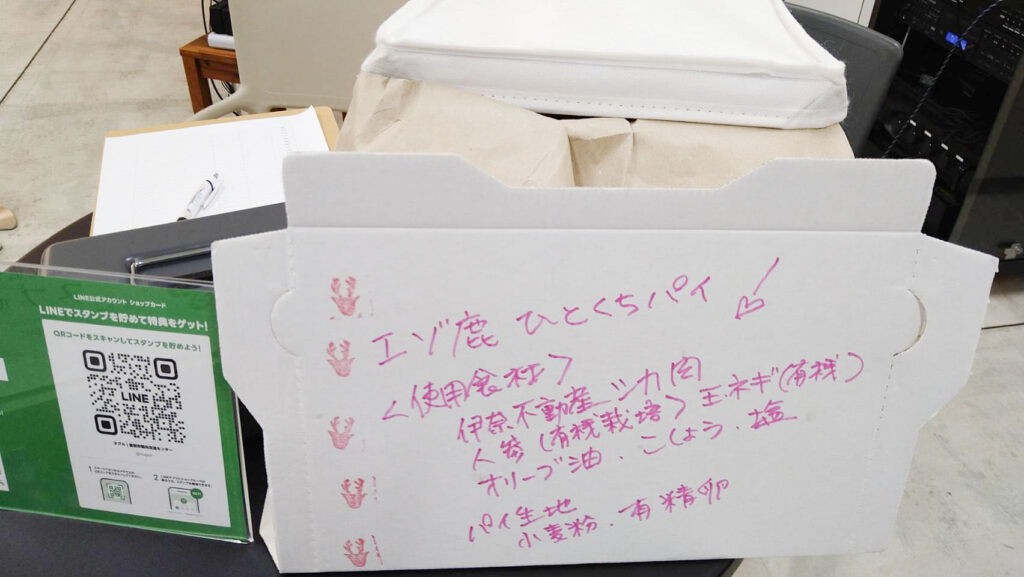 LINE公式アカウント ショップカード
LINEでスタンプを貯めて特典をゲット!
QRコードをスキャンしてスタンプを貯めよう!
LINE
1
2
エゾ鹿 ひとくちパイ
<使用食材>
伊奈不動産ジカ肉
人参(有機栽培) 玉ネギ(有機)
オリーブ油・こしょう・塩
パイ生地
小麦粉・有精卵